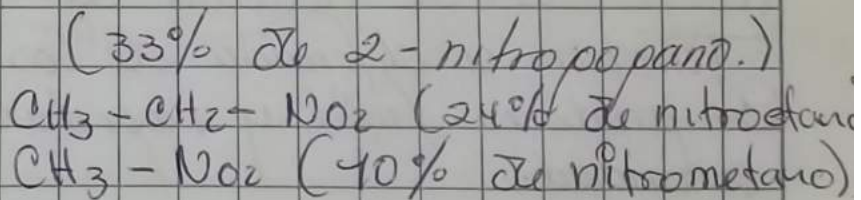 (33% de 2-nitropopano.)
CH3-CH2-NO2 (24% de nitroetano
CH3-NO2 (40% de nitrometano)